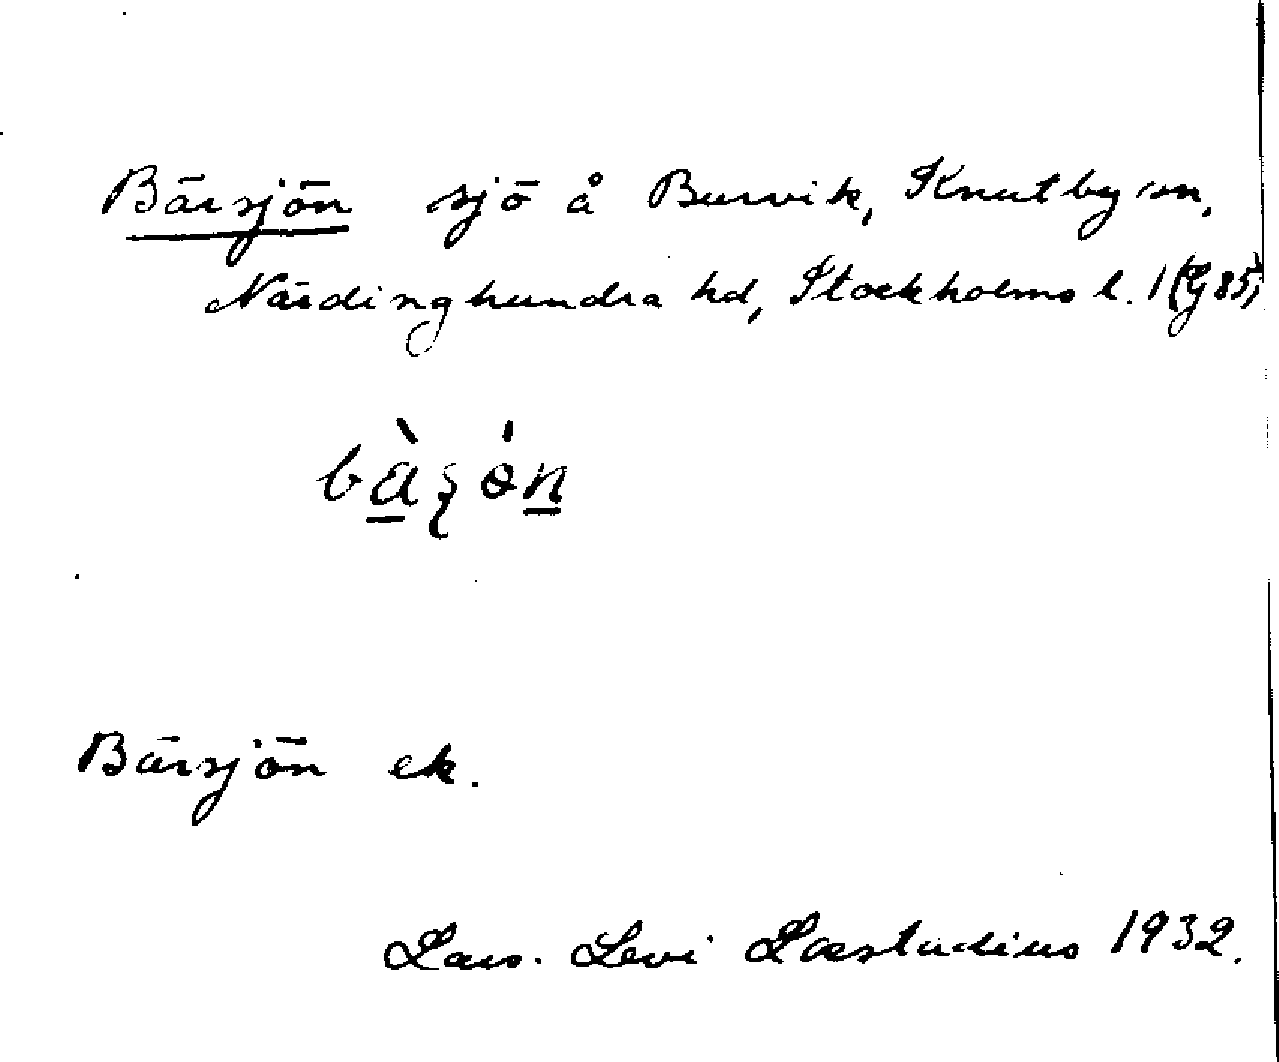 Bärsjön sjö å Burvik, Knutby sn,
Närdinghundra hd, Stockholms l. 1 (G 85)
Bärsjön ek.
Lars. Levi Læstadius 1932.